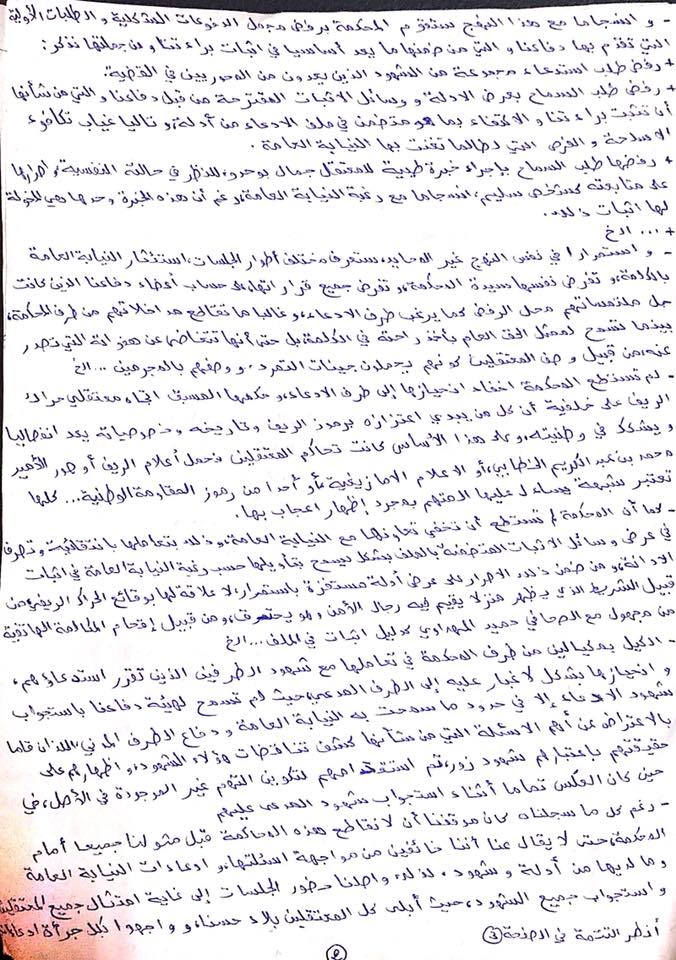 - و انسجاما مع هذا النهج ستقوم المحكمة برفض مجمل الدفوعات الشكلية و الطلبات الأولية
التي تقدم بها دفاعنا و التي من ضمنها ما يعد أساسيا في اثبات براءتنا و من جملتها نذكر:
+ رفض طلب استدعاء مجموعة من الشهود الذين يعدون من المحوريين في القضية.
+ رفض طلب السماح بعرض الادلة و وسائل الاثبات المقترحة من قبل دفاعنا و التي من شأنها
أن تثبت براءتنا و الاكتفاء بما هو متضمن في ملف الادعاء من أدلة، و تاليا غياب تكافؤ
الاسلحة و الفرص التي لطالما تغنت بها النيابة العامة.
+ رفضها طلب السماح بإجراء خبرة طبية للمعتقل جمال بوحدو، للنظر في حالته النفسية، و اصرارها
على متابعته كشخص سليم، انسجاما مع رغبة النيابة العامة، رغم أن هذه الخبرة وحدها هي المخولة
لها اثبات ذلك.
+ ... الخ
- و استمرارا في نفس النهج غير المحايد، ستعرف مختلف أطوار الجلسات، استئثار النيابة العامة
بالكلمة، و تفرض نفسها سيدة المحكمة، و تفرض جميع قراراتها، على حساب أعضاء دفاعنا الذين كانت
جل ملتمساتهم محل الرفض كما يرغب طرف الادعاء، و غالبا ما تقاطع مداخلاتهم من طرف المحكمة،
بينما تسمح لممثل الحق العام بأخذ راحته في الكلمة، بل حتى أنها تتغاضى عن هفواته التي تصدر
عنه، من قبيل وصف المعتقلين كونهم يحملون جينات التمرد، و وصفهم بالمجرمين ... الخ
- لم تستطع المحكمة اخفاء انحيازها إلى طرف الادعاء، و حكمها المسبق اتجاه معتقلي حراك
الريف على خلفية أن كل من يبدي اعتزازه برموز الريف و تاريخه و خصوصياته يعد انفصاليا
و يشكك في وطنيته، و على هذا الأساس كانت تحاكم المعتقلين فحمل أعلام الريف أو صور الأمير
محمد بن عبد الكريم الخطابي، أو الاعلام الامازيغية، أو أحدا من رموز المقاومة الوطنية... كلها
تعتبر شبهة يساءل عليها المتهم بمجرد إظهار اعجاب بها.
- كما أن المحكمة لم تستطع أن تخفي تعاونها مع النيابة العامة، و ذلك بتعاملها بانتقائية و تصرف
في عرض وسائل الاثبات المتضمنة بالملف بشكل يسمح بتأويلها حسب رغبة النيابة العامة في اثبات
الادانة، و من ضمن ذلك الاصرار على عرض أدلة مستفزة باستمرار، لا علاقة لها بوقائع الحراك الريفي، من
قبيل الشريط الذي يظهر منزلا يقيم فيه رجال الأمن و هو يحترق، و من قبيل إقحام المكالمة الهاتفية
من مجهول مع الصحافي حميد المهداوي كدليل اثبات في الملف... الخ
- الكيل بمكيالين من طرف المحكمة في تعاملها مع شهود الطرفين الذين تقرر استدعاؤهم،
و انحيازها بشكل لا غبار عليه إلى الطرف المدعي، حيث لم تسمح لهيئة دفاعنا باستجواب
شهود الادعاء إلا في حدود ما سمحت به النيابة العامة و دفاع الطرف المدني، اللذان قاما
بالاعتراض عن أهم الاسئلة التي من شأنها كشف تناقضات هؤلاء الشهود، و اظهارهم على
حقيقتهم باعتبارهم شهود زور، تم استقدامهم لتكوين التهم غير الموجودة في الأصل، في
حين كان العكس تماما أثناء استجواب شهود المدعى عليهم
- رغم كل ما سجلناه كان موقفنا أن لا نقاطع هذه المحاكمة قبل مثولنا جميعا أمام
المحكمة، حتى لا يقال عنا أننا خائفين من مواجهة اسئلتها، و ادعاءات النيابة العامة
و ما لديها من أدلة و شهود، لذلك واصلنا حضور الجلسات إلى غاية امتثال جميع المعتقلين
و استجواب جميع الشهود، حيث أبلى كل المعتقلين بلاء حسنا، و واجهوا بكل جرأة ادعاءات
أنظر التتمة في الصفحة ③
②